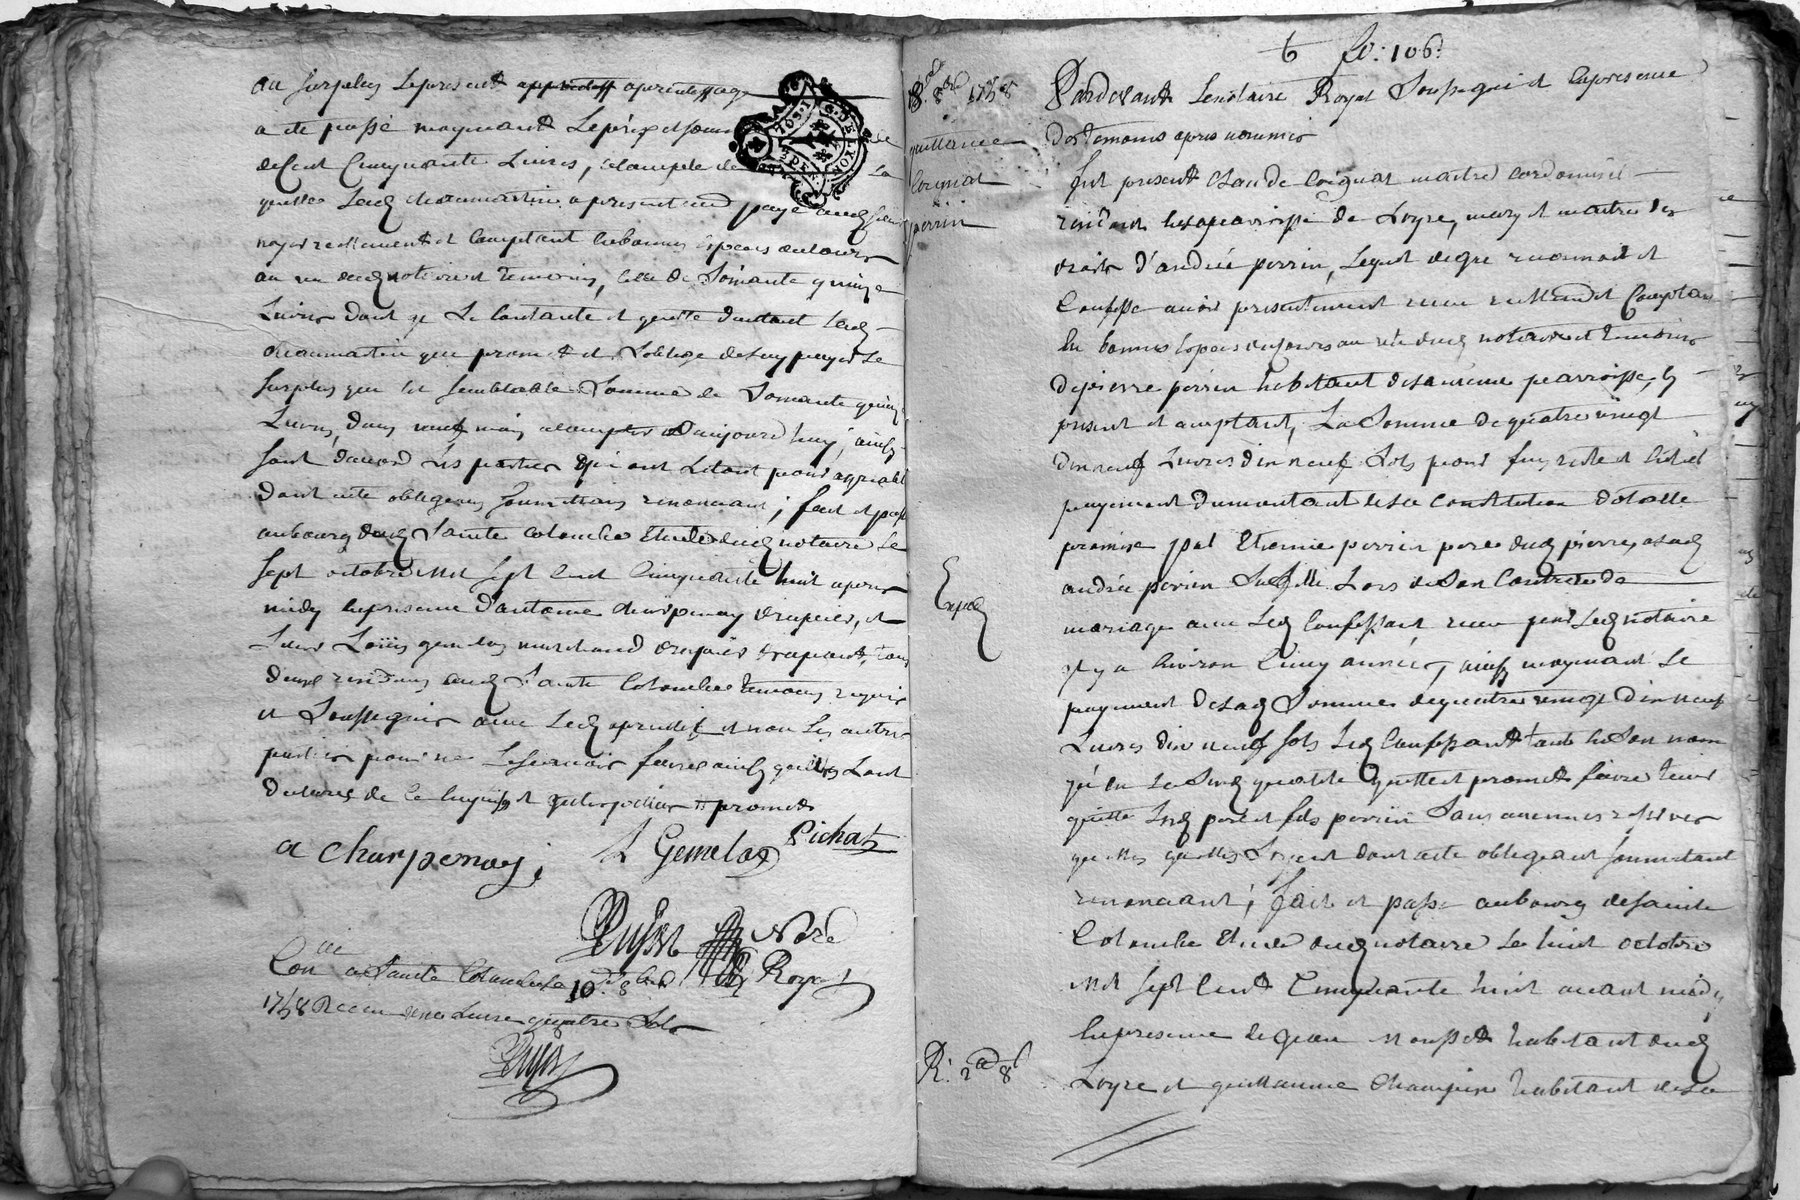 au surplus le present aprentissage
a ete passé moyenant le prix et somme
de cent cinquante livres, a compte de la
quelle led chaumartin a presentement payé aud sieur
reellement et comptant en bonnes especes de cours
au vu dud notaire et temoins, celle de soixante quinze
livres dont il se contante et quitte d'autant led
chaumartin qui promet et s'oblige de luy payer le
surplus qui est semblable somme de soixante quinze
livres, dans neuf mois a compter d'aujourd'huy, ainsy
sont d'accord les parties qui ont le tout pour agreable
dont acte obligeans soumettans renonceant; fait et passé
au bourg dud Sainte Colombe Etude dud notaire le
sept octobre mil sept cent cinquante huit apres
midy en presence d'antoine charpenay drapier, et
sieur Loüis gemelas marchand drapier drapant, tous
deux residans aud Sainte Colombe temoins requis
et soussignés avec led aprentif et non les autres
parties pour ne le sçavoir faire ainsy qu'ils ont
declaré de ce enquis et
a charpenay; L Gemelas Pichat
Nore
Royal
Con lé a Sainte Colombe le 10 8bre
1758 Receu une livre quatre sols
fo: 106
8e 8bre 1758
quittance
Coignat
perrin
Pardevant le notaire Royal soussigné et en presence
des temoins apres nommés
fut present Claude Coignat maitre cordonnier
residant en la parroisse de Loyre, mary et maitre des
droits d'andrée perrin, lequel de gré reconnoit et
confesse avoir presentement receu reellement et comptant
en bonnes especes de cours au vu dud notaire et temoins
de pierre perrin habitant de la meme parroisse, cy
present et acceptant, la somme de quatre vingt
dix neuf livres dix neuf sols pour fin, reste et entier
payement du montant de la constitution dotalle
promise par Etienne perrin pere dud pierre, a lad
andrée perrin sa fille lors de son contract de
mariage avec led confessant, receu par led notaire
il y a environ cinq années, ainsy moyenant le
payement de lad somme de quatre vingt dix neuf
livres dix neuf sols led confessant tant en son nom
qu'en la susd qualité quitte et promet faire tenir
quitte lesd pere et fils perrin sans aucunes reserves
quelles qu'elles soyent dont acte obligeant soumettant
renonceant; fait et passé au bourg de Sainte
Colombe Etude dud notaire le huit octobre
mil sept cent cinquante huit avant midy,
en presence de jean habitant dud
Loyre et guillaume champin habitant de la
Exped
R: 2d 8